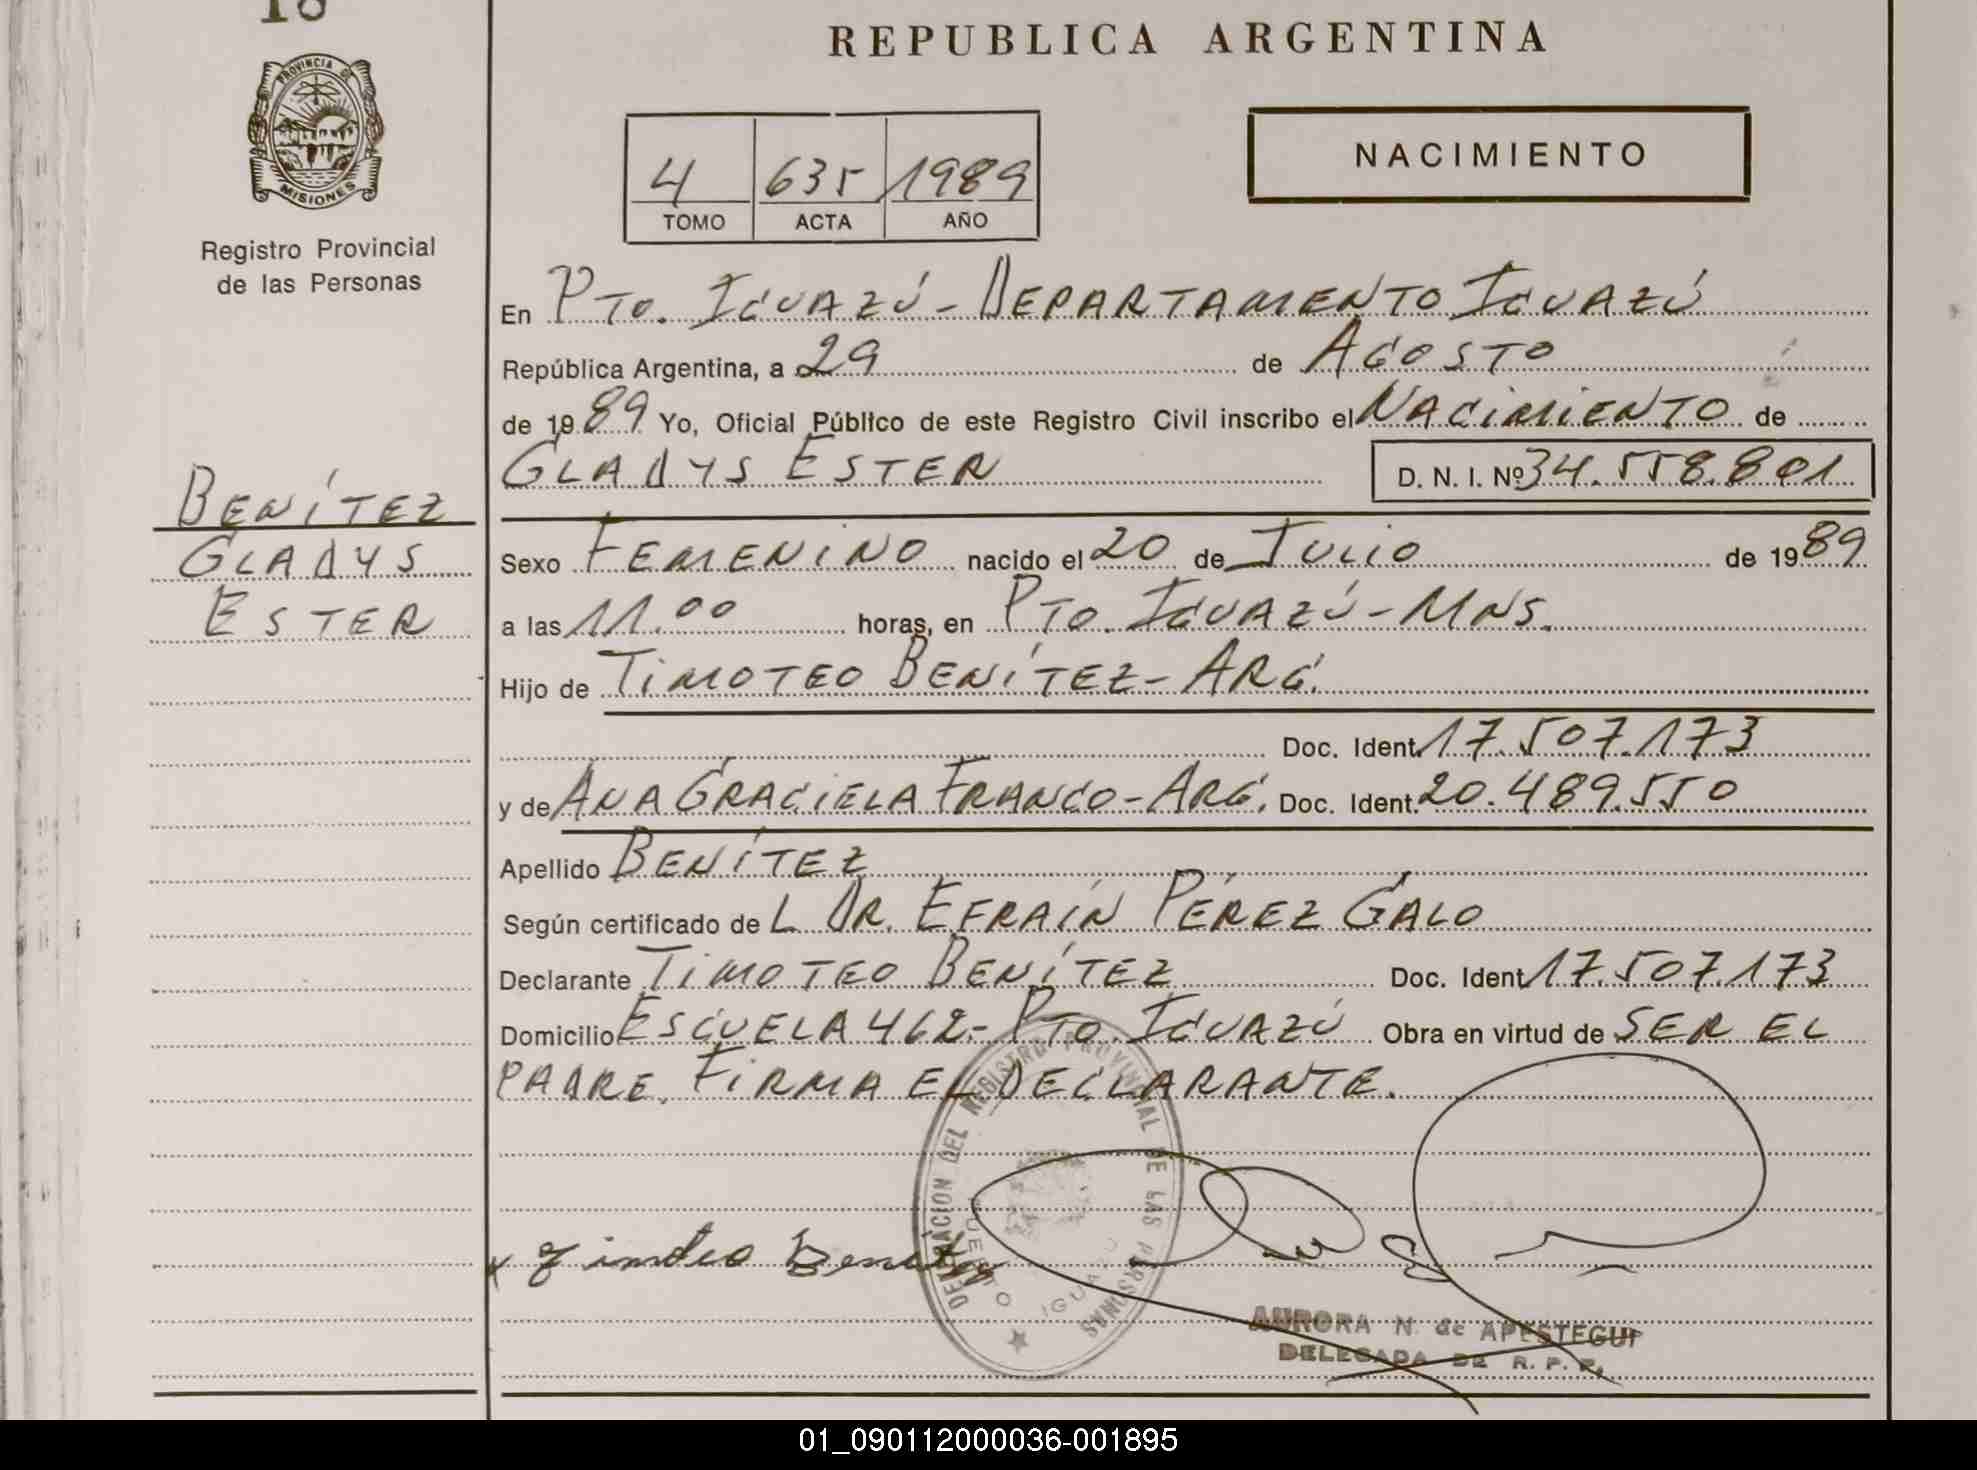 18
REPUBLICA ARGENTINA
PROVINCIA DE
MISIONES
Registro Provincial
de las Personas
4 635 1989
TOMO ACTA AÑO
NACIMIENTO
En PTO. IGUAZÚ - DEPARTAMENTO IGUAZÚ
República Argentina, a 29 de AGOSTO
de 1989 Yo, Oficial Público de este Registro Civil inscribo el NACIMIENTO de
GLADYS ESTER D. N. I. Nº 34.558.801
BENÍTEZ
GLADYS
ESTER
Sexo FEMENINO nacido el 20 de JULIO de 1989
a las 11.00 horas, en PTO. IGUAZÚ - MNS.
Hijo de TIMOTEO BENÍTEZ - ARG.
Doc. Ident. 17.507.173
y de ANA GRACIELA FRANCO - ARG. Doc. Ident. 20.489.550
Apellido BENÍTEZ
Según certificado de L DR. EFRAÍN PÉREZ GALO
Declarante TIMOTEO BENÍTEZ Doc. Ident. 17.507.173
Domicilio ESCUELA 462 - PTO. IGUAZÚ Obra en virtud de SER EL
PADRE. FIRMA EL DECLARANTE.
DELEGACION DEL REGISTRO PROVINCIAL DE LAS PERSONAS
PUERTO IGUAZU
x Timoteo Benitez
AURORA N. de APESTEGUI
DELEGADA DE R. P. P.
01_090112000036-001895